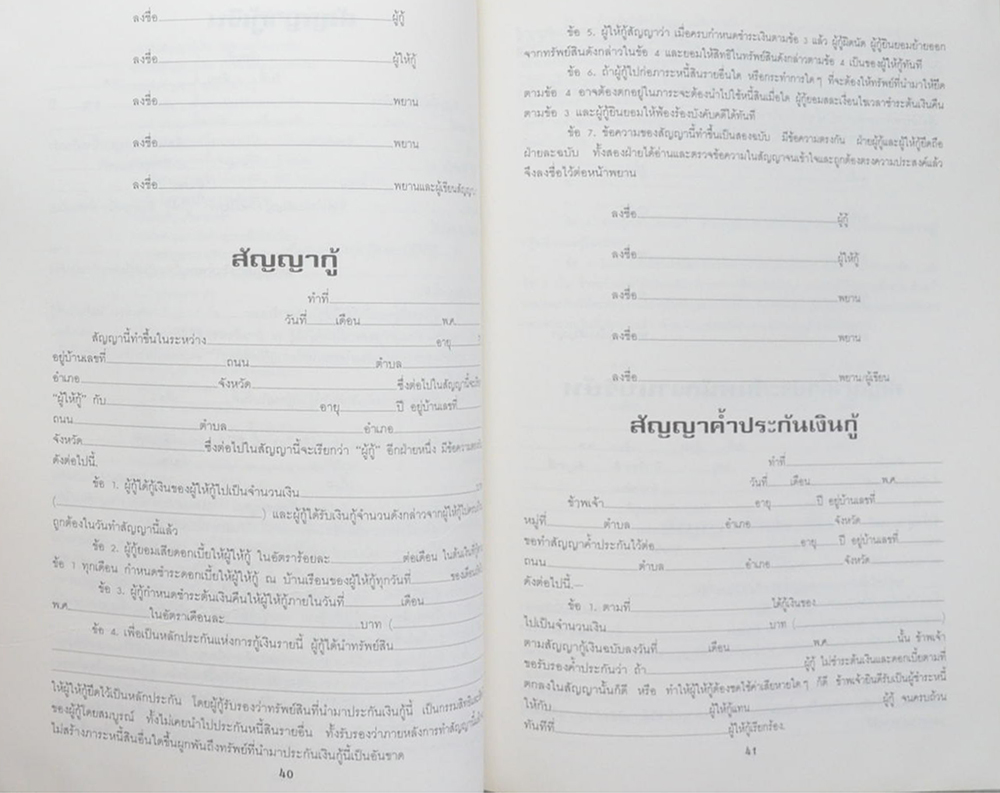 ลงชื่อ ผู้กู้
ลงชื่อ ผู้ให้กู้
ลงชื่อ พยาน
ลงชื่อ พยาน
ลงชื่อ พยานและผู้เขียนสัญญา
สัญญากู้
ทำที่
วันที่ เดือน พ.ศ.
สัญญานี้ทำขึ้นในระหว่าง อายุ
อยู่บ้านเลขที่ ถนน ตำบล
อำเภอ จังหวัด ซึ่งต่อไปในสัญญานี้จะ
"ผู้ให้กู้" กับ อายุ ปี อยู่บ้านเลขที่
ถนน ตำบล อำเภอ
จังหวัด ซึ่งต่อไปในสัญญานี้จะเรียกว่า "ผู้กู้" อีกฝ่ายหนึ่ง มีข้อความ
ดังต่อไปนี้.
ข้อ 1. ผู้กู้ได้กู้เงินของผู้ให้กู้ไปเป็นจำนวนเงิน
( ) และผู้กู้ได้รับเงินกู้จำนวนดังกล่าวจากผู้ให้กู้ไป
ถูกต้องในวันทำสัญญานี้แล้ว
ข้อ 2. ผู้กู้ยอมเสียดอกเบี้ยให้ผู้ให้กู้ ในอัตราร้อยละ ต่อเดือน ในต้นเงิน
ข้อ 1 ทุกเดือน กำหนดชำระดอกเบี้ยให้ผู้ให้กู้ ณ บ้านเรือนของผู้ให้กู้ทุกวันที่
ข้อ 3. ผู้กู้กำหนดชำระต้นเงินคืนให้ผู้ให้กู้ภายในวันที่ เดือน
พ.ศ. ในอัตราเดือนละ บาท (
ข้อ 4. เพื่อเป็นหลักประกันแห่งการกู้เงินรายนี้ ผู้กู้ได้นำทรัพย์สิน
ให้ผู้ให้กู้ยึดไว้เป็นหลักประกัน โดยผู้กู้รับรองว่าทรัพย์สินที่นำมาประกันเงินกู้นี้ เป็นกรรมสิทธิ์
ของผู้กู้โดยสมบูรณ์ ทั้งไม่เคยนำไปประกันหนี้สินรายอื่น ทั้งรับรองว่าภายหลังการทำสัญญานี้แล้ว
ไม่สร้างภาระหนี้สินอื่นใดขึ้นผูกพันถึงทรัพย์ที่นำมาประกันเงินกู้นี้เป็นอันขาด
40
ข้อ 5. ผู้ให้กู้สัญญาว่า เมื่อครบกำหนดชำระเงินตามข้อ 3 แล้ว ผู้กู้ผิดนัด ผู้กู้ยินยอมย้ายออก
จากทรัพย์สินดังกล่าวในข้อ 4 และยอมให้สิทธิในทรัพย์สินดังกล่าวตามข้อ 4 เป็นของผู้ให้กู้ทันที
ข้อ 6. ถ้าผู้กู้ไปก่อภาระหนี้สินรายอื่นใด หรือกระทำการใดๆ ที่จะต้องให้ทรัพย์ที่นำมาให้ยึด
ตามข้อ 4 อาจต้องตกอยู่ในภาระจะต้องนำไปใช้หนี้สินเมื่อใด ผู้กู้ยอมสละเงื่อนไขเวลาชำระต้นเงินคืน
ตามข้อ 3 และผู้กู้ยินยอมให้ฟ้องร้องบังคับคดีได้ทันที
ข้อ 7. ข้อความของสัญญานี้ทำขึ้นเป็นสองฉบับ มีข้อความตรงกัน ฝ่ายผู้กู้และผู้ให้กู้ยึดถือ
ฝ่ายละฉบับ ทั้งสองฝ่ายได้อ่านและตรวจข้อความในสัญญาจนเข้าใจและถูกต้องตรงความประสงค์แล้ว
จึงลงชื่อไว้ต่อหน้าพยาน
ลงชื่อ ผู้กู้
ลงชื่อ ผู้ให้กู้
ลงชื่อ พยาน
ลงชื่อ พยาน
ลงชื่อ พยาน/ผู้เขียน
สัญญาค้ำประกันเงินกู้
ทำที่
วันที่ เดือน พ.ศ.
ข้าพเจ้า อายุ ปี อยู่บ้านเลขที่
หมู่ที่ ตำบล อำเภอ จังหวัด
ขอทำสัญญาค้ำประกันไว้ต่อ อายุ ปี อยู่บ้านเลขที่
ถนน ตำบล อำเภอ จังหวัด
ดังต่อไปนี้.—
ข้อ 1. ตามที่ ได้กู้เงินของ
ไปเป็นจำนวนเงิน บาท ( )
ตามสัญญากู้เงินฉบับลงวันที่ เดือน พ.ศ. นั้น ข้าพเจ้า
ขอรับรองค้ำประกันว่า ถ้า ผู้กู้ ไม่ชำระต้นเงินและดอกเบี้ยตามที่
ตกลงในสัญญานั้นก็ดี หรือ ทำให้ผู้ให้กู้ต้องชดใช้ค่าเสียหายใดๆ ก็ดี ข้าพเจ้ายินดีรับเป็นผู้ชำระหนี้
ให้กับ ผู้ให้กู้แทน ผู้กู้ จนครบถ้วน
ทันทีที่ ผู้ให้กู้เรียกร้อง.
41